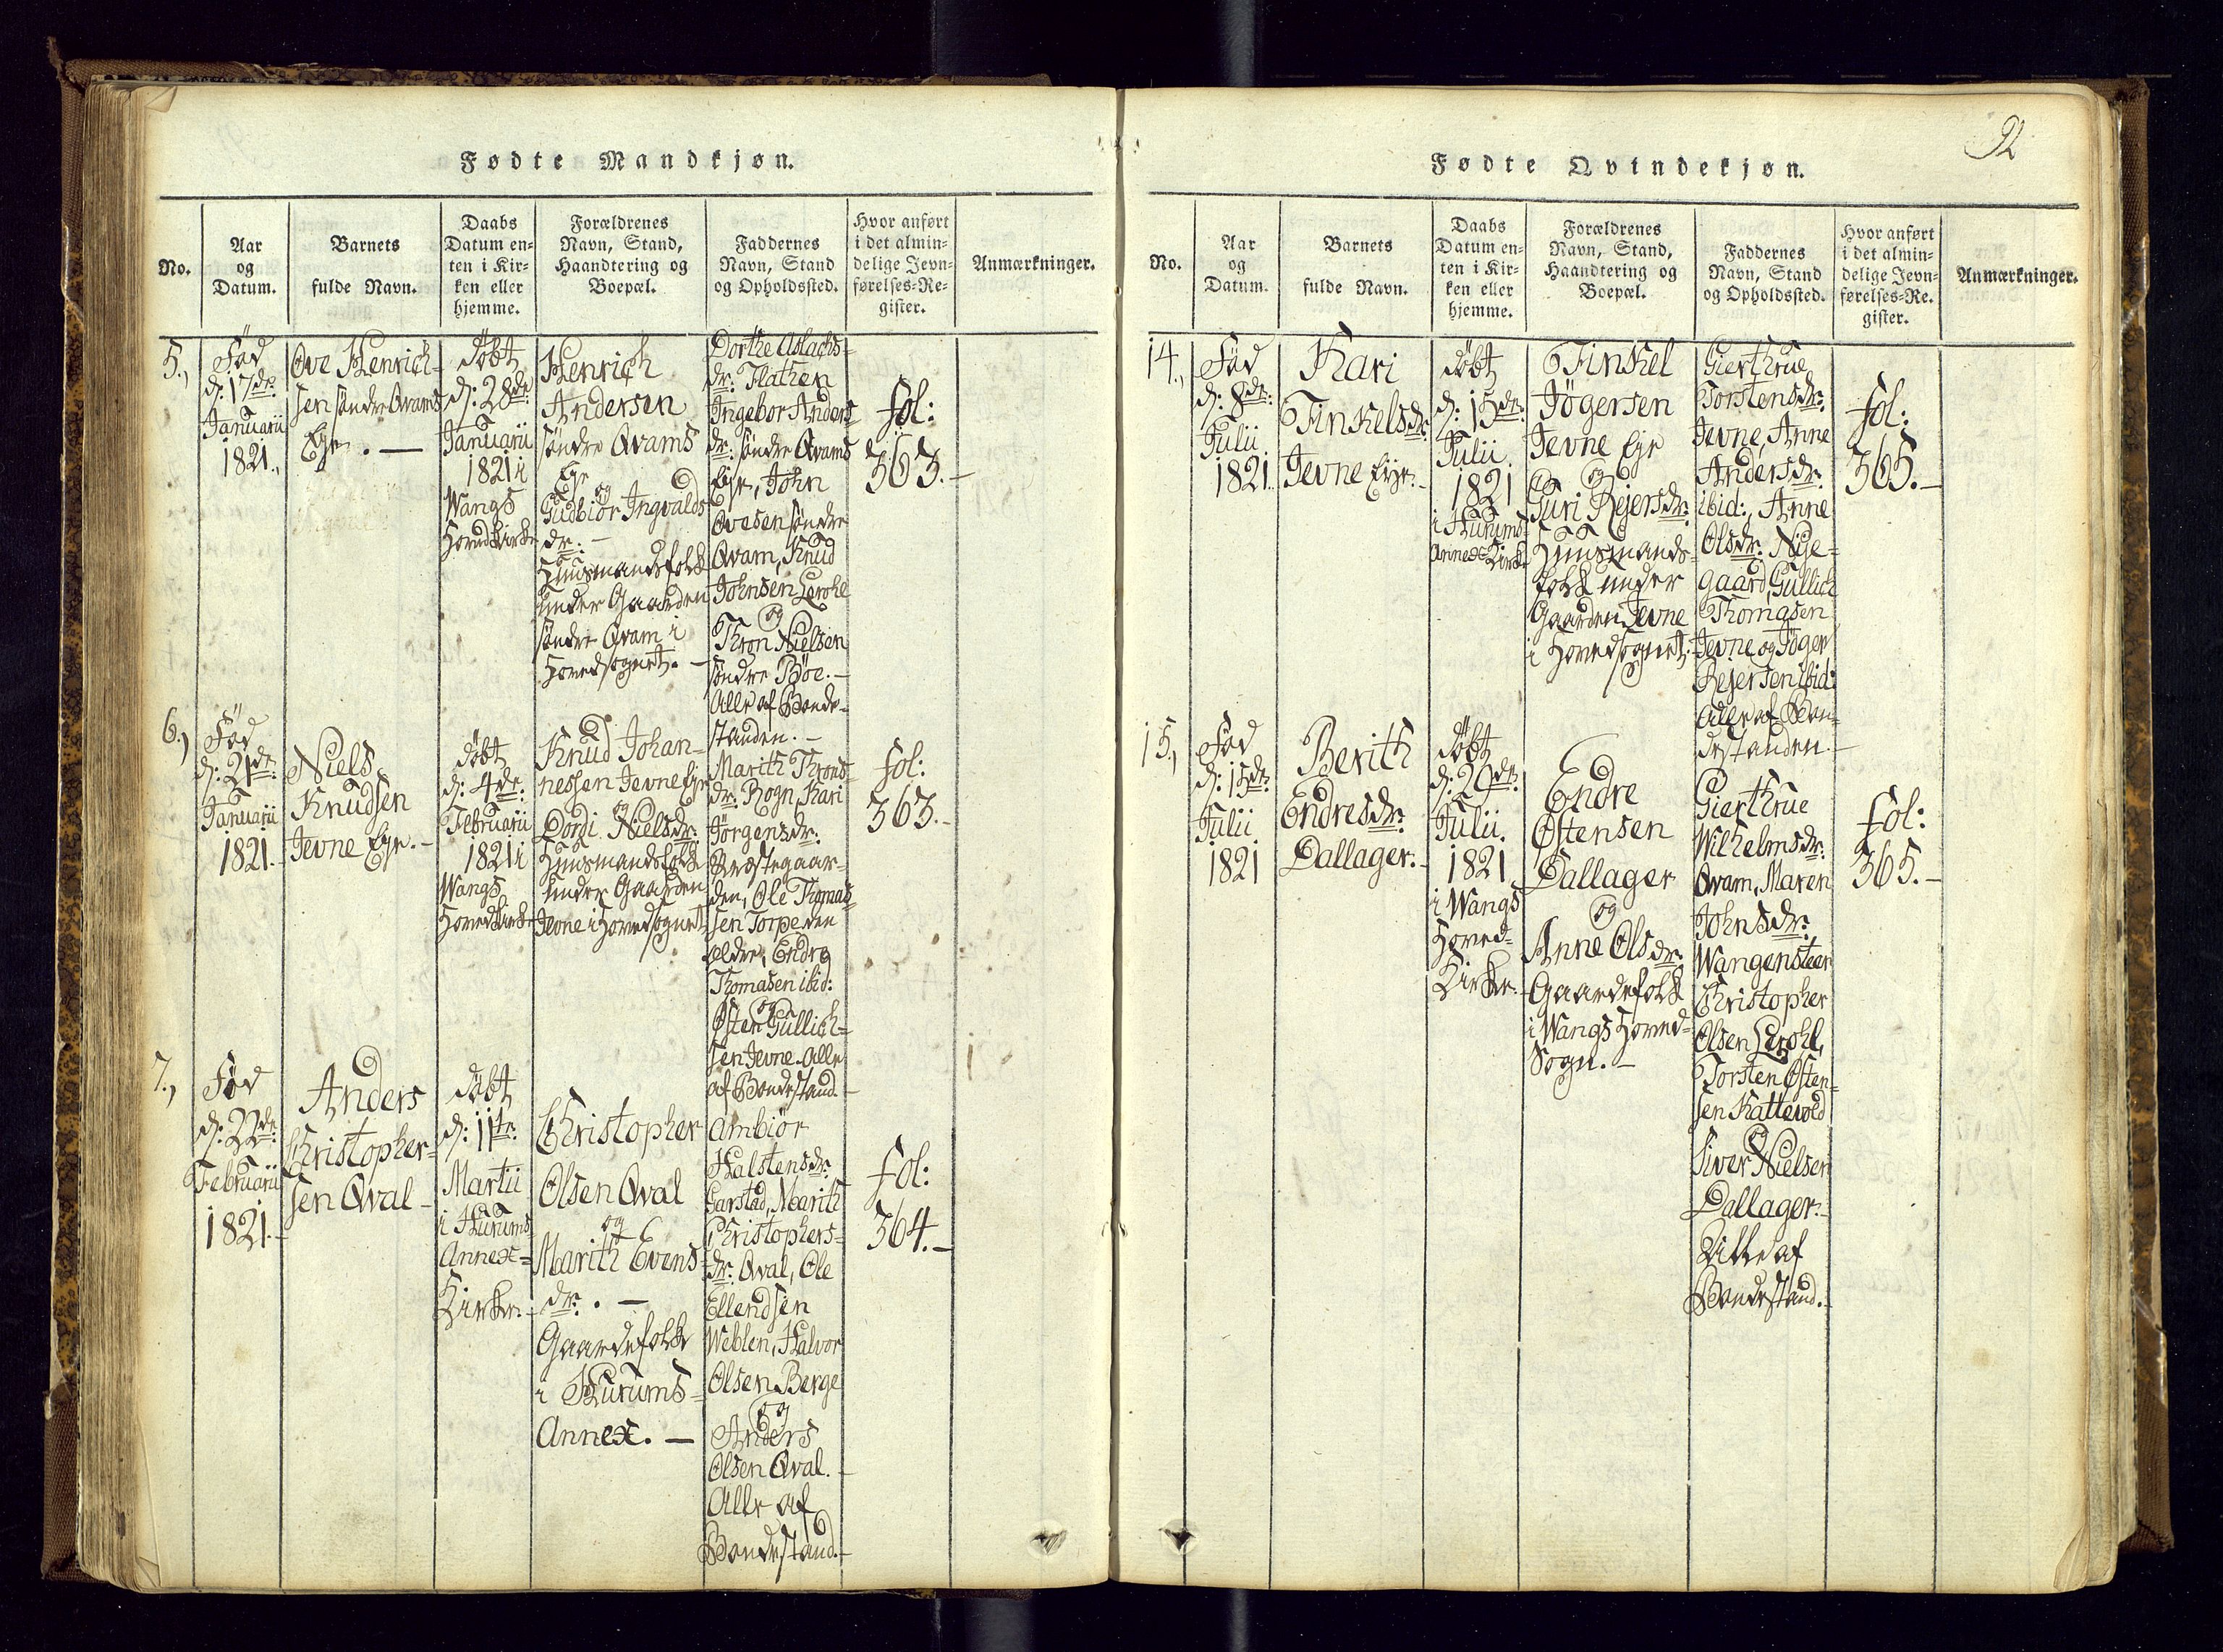 Fødte Mandkjøn.
No.
Aar
og
Datum.
Barnets
fulde Navn.
Daabs
Datum en-
ten i Kir-
ken eller
hjemme.
Forældrenes
Navn, Stand,
Haandtering og
Boepæl.
Faddernes
Navn, Stand
og Opholdssted.
Hvor anført
i det almin-
delige Jevn-
førelses-Re-
gister.
Anmærkninger.
5.,
Fød
d: 17de:
Januarii
1821.,
Ove Henrich-
sen søndre Qvams
Eje. —
döbt
d: 28de
Januarii
1821 i
Wangs
Hovedkirke
Henrich
Andersen
søndre Qvams
Eje
og
Gudbiør Ingvalds
dr: —
Huusmandsfolk
under Gaarden
søndre Qvam i
Hovedsognet. —
Dorthe Aslachs-
dr: Flathen
Ingebor Anders
dr: søndre Qvams
Eje, John
Ovesen søndre
Qvam, Knud
Johnsen Lerohl
og
Thron Nielsen
søndre Böe. —
Alle af Bonde-
standen. —
fol:
363. —
6.,
Fød
d: 21de:
Januarii
1821. —
Niels
Knudsen
Jevne Eje. —
döbt
d: 4de:
Februarii
1821 i
Wangs
Hovedkirke
Knud Johan-
nessen Jevne Eje
og
Dordi Nielsdr:
Huusmandsfolk
under Gaarden
Jevne i Hovedsognet
Marith Throns-
dr: Rogn, Kari
Jørgensdr:
Præstegaar-
den, Ole Thomas-
sen Torpe den
ældre, Endre
Thomasen ibid:
og
Østen Gullich-
sen Jevne. Alle
af Bondestand. —
fol:
363. —
7.,
Fød
d: 22de:
Februarii
1821. —
Anders
Christopher-
sen Qval —
döbt
d: 11te:
Martii
i Hurums
Annex-
Kirke. —
Christopher
Olsen Qval
og
Marith Evens-
dr: . —
Gaardefolk
i Hurums-
Annex. —
Ambiör
Halstensdr:
Garstad, Marith
Christophers-
dr: Qval, Ole
Ellendsen
Weblen, Halvor
Olsen Berge
og
Anders
Olsen Qval. —
Alle af
Bondestand. —
fol:
364. —
92
Fødte Qvindekjøn.
No.
Aar
og
Datum.
Barnets
fulde Navn.
Daabs
Datum en-
ten i Kir-
ken eller
hjemme.
Forældrenes
Navn, Stand,
Haandtering og
Boepæl.
Faddernes
Navn, Stand
og Opholdssted.
Hvor anført
i det almin-
delige Jevn-
førelses-Re.
gister.
Anmærkninger.
14.,
Fød
d: 8de:
Julii
1821.
Kari
Finkelsdr:
Jevne Eje. —
döbt
d: 15de:
Julii
1821
i Hurums-
Annex Kirke
Finkel
Jögersen
Jevne Eje
og
Turi Rejersdr:
Huusmands-
folk under
Gaarden Jevne
i Hovedsognet. —
Gierthrue
Torstensdr:
Jevne, Anne
Andersdr:
ibid:, Anne
Olsdr: Nye-
gaard, Gullich
Thomasen
Jevne og Jöger
Rejersen ibid:
Alle af Bon-
destanden. —
fol:
365. —
15.,
Fød
d: 15de:
Julii
1821
Berith
Endresdr:
Dallager. —
döbt
d: 29de:
Julii
1821
i Wangs
Hoved-
Kirke.
Endre
Østensen
Dallager
og
Anne Olsdr:
Gaardefolk
i Wangs Hoved-
Sogn. —
Gierthrue
Wilhelmsdr:
Qvam, Maren
Johnsdr:
Wangensteen
Christopher
Olsen Lerohl,
Torsten Østen-
sen Kattevold
og
Siver Nielsen
Dallager. —
Alle af
Bondestand. —
fol:
365. —